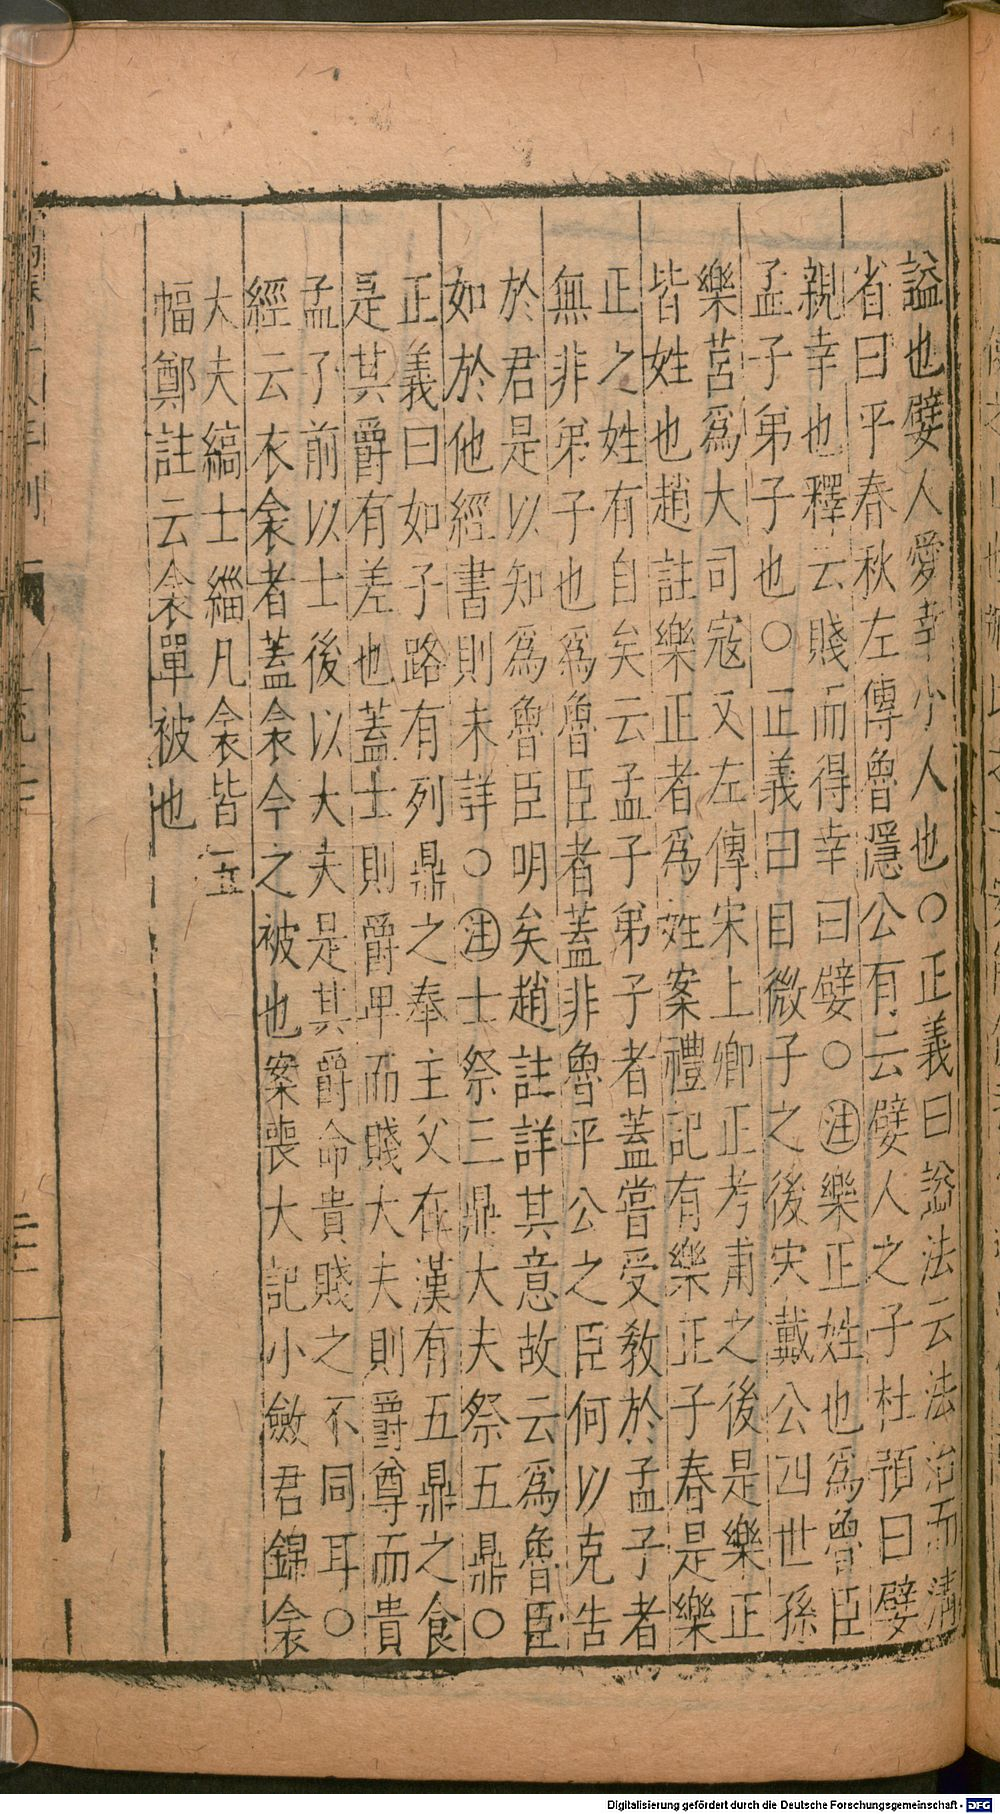 謚也嬖人愛幸小人也○正義曰謚法云法治而清
省曰平春秋左傳魯隱公有云嬖人之子杜預曰嬖
親幸也釋云賤而得幸曰嬖○注樂正姓也爲魯臣
孟子弟子也○正義曰目微子之後宋戴公四世孫
樂莒爲大司寇又左傳宋上卿正考甫之後是樂正
皆姓也趙註樂正者爲姓案禮記有樂正子春是樂
正之姓有自矣云孟子弟子者蓋嘗受教於孟子者
無非弟子也爲魯臣者蓋非魯平公之臣何以克告
於君是以知爲魯臣明矣趙註詳其意故云爲魯臣
如於他經書則未詳○注士祭三鼎大夫祭五鼎○
正義曰如子路有列鼎之奉主父在漢有五鼎之食
是其爵有差也蓋士則爵卑而賤大夫則爵尊而貴
孟子前以士後以大夫是其爵命貴賤之不同耳○
經云衣衾者蓋衾今之被也案喪大記小斂君錦衾
大夫縞士緇凡衾皆一五
幅鄭註云衾單被也
Digitalisierung gefördert durch die Deutsche Forschungsgemeinschaft - DFG